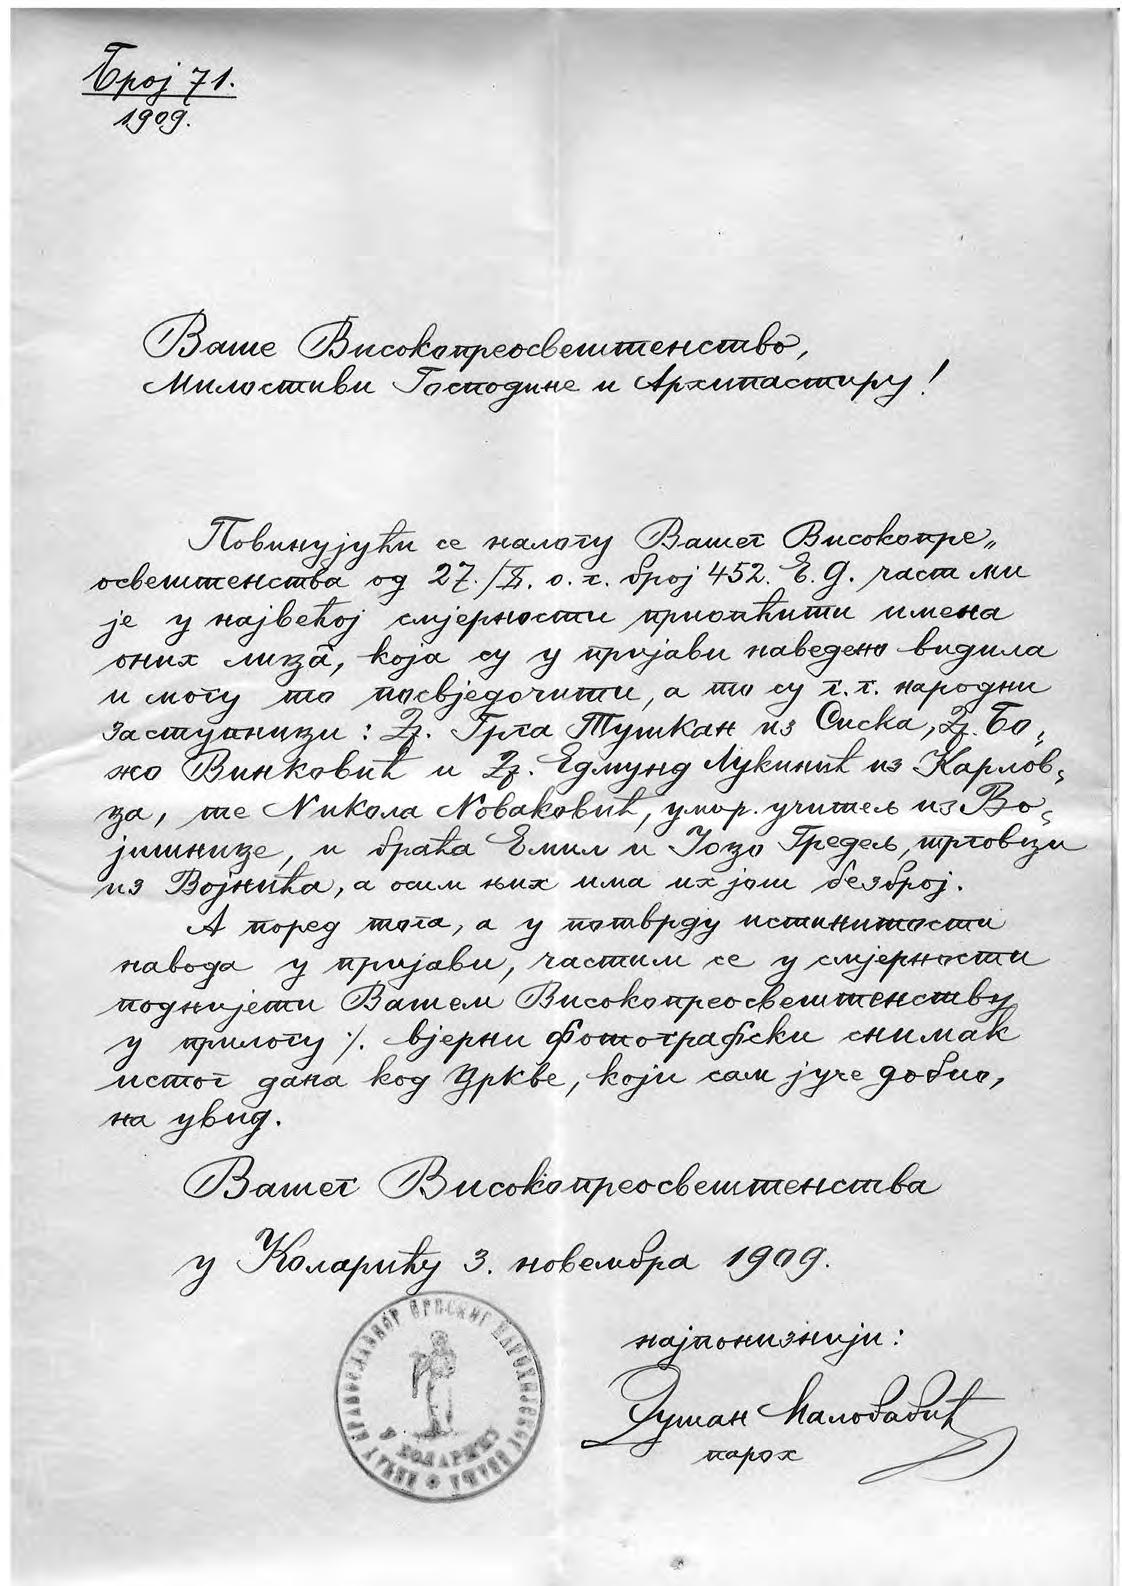 Број 71.
1909.
Ваше Високопреосвештенство,
Милостиви Господине и Архипастиру!
Повинујући се налогу Вашег Високопре„
освештенства од 27./X. о. г. број 452. Е. Д. част ми
је у највећој смјерности приопћити имена
оних лица̂, која су у пријави наведено видила
и могу то посвједочити, а то су г. г. народни
заступници: Др. Грга Тушкан из Сиска, Др. Бо„
жо Винковић и Др. Едмунд Лукинић из Карлов„
ца, те Никола Новаковић, умир. учитељ из Во„
јишнице, и браћа Емил и Јозо Гредељ, трговци
из Војнића, а осим њих има их још безброј.
А поред тога, а у потврду истинитости
навода у пријави, частим се у смјерности
поднијети Вашем Високопреосвештенству
у прилогу ·/. вјерни фотографски снимак
истог дана код цркве, који сам јуче добио,
на увид.
Вашег Високопреосвештенства
у Коларићу 3. новембра 1909.
најпонизнији:
Душан Малобабић
парох
ПЕЧАТ ПРАВОСЛАВНОГ СРПСКОГ ПАРОХИЈСКОГ ЗВАЊА
У КОЛАРИЋУ